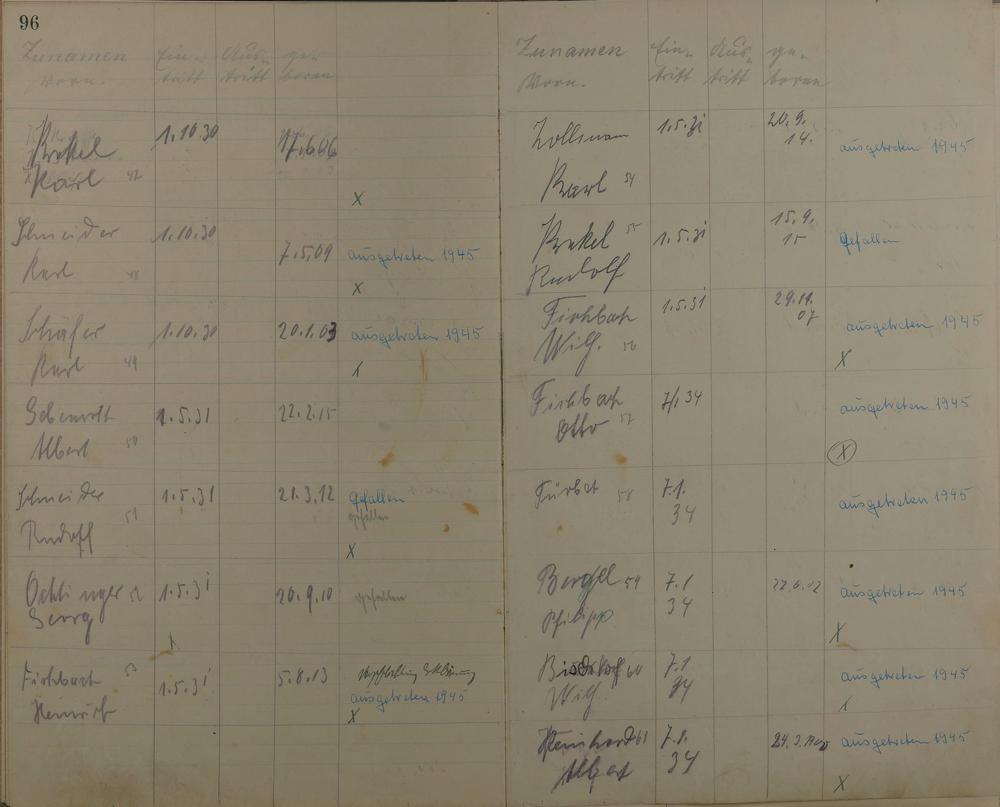 96
Zunamen Ein- Aus- ge-
Vorn. tritt tritt boren
1.10.30 17.6.06
Karl 47
X
Schneider 1.10.30
7.5.09 ausgetreten 1945
Karl 48
X
Schäfer 1.10.30 20.1.03 ausgetreten 1945
Karl 49
X
1.5.31 22.2.15
Albert 50
Schneider 1.5.31 21.3.12 Gefallen
51 gefallen
Rudolf
X
52 1.5.31 20.9.10 gefallen
Georg
X
Fischbach 53 1.5.31 5.8.13
ausgetreten 1945
Heinrich
X
Zunamen Ein- Aus- ge-
Vorn. tritt tritt boren
Zollmann 1.5.31 20.9.
14. ausgetreten 1945
Karl 54
55 1.5.31 15.9.
15 Gefallen
Rudolf
Fischbach 1.5.31 29.11.
07 ausgetreten 1945
Wilh. 56
X
Fischbach 7/1 34 ausgetreten 1945
Otto 57
X
58 7.1. ausgetreten 1945
34
59 7.1 22.6.02 ausgetreten 1945
Philipp 34
X
60 7.1 ausgetreten 1945
Wilh. 34
X
Reinhard 61 7.1. ausgetreten 1945
Albert 34
X